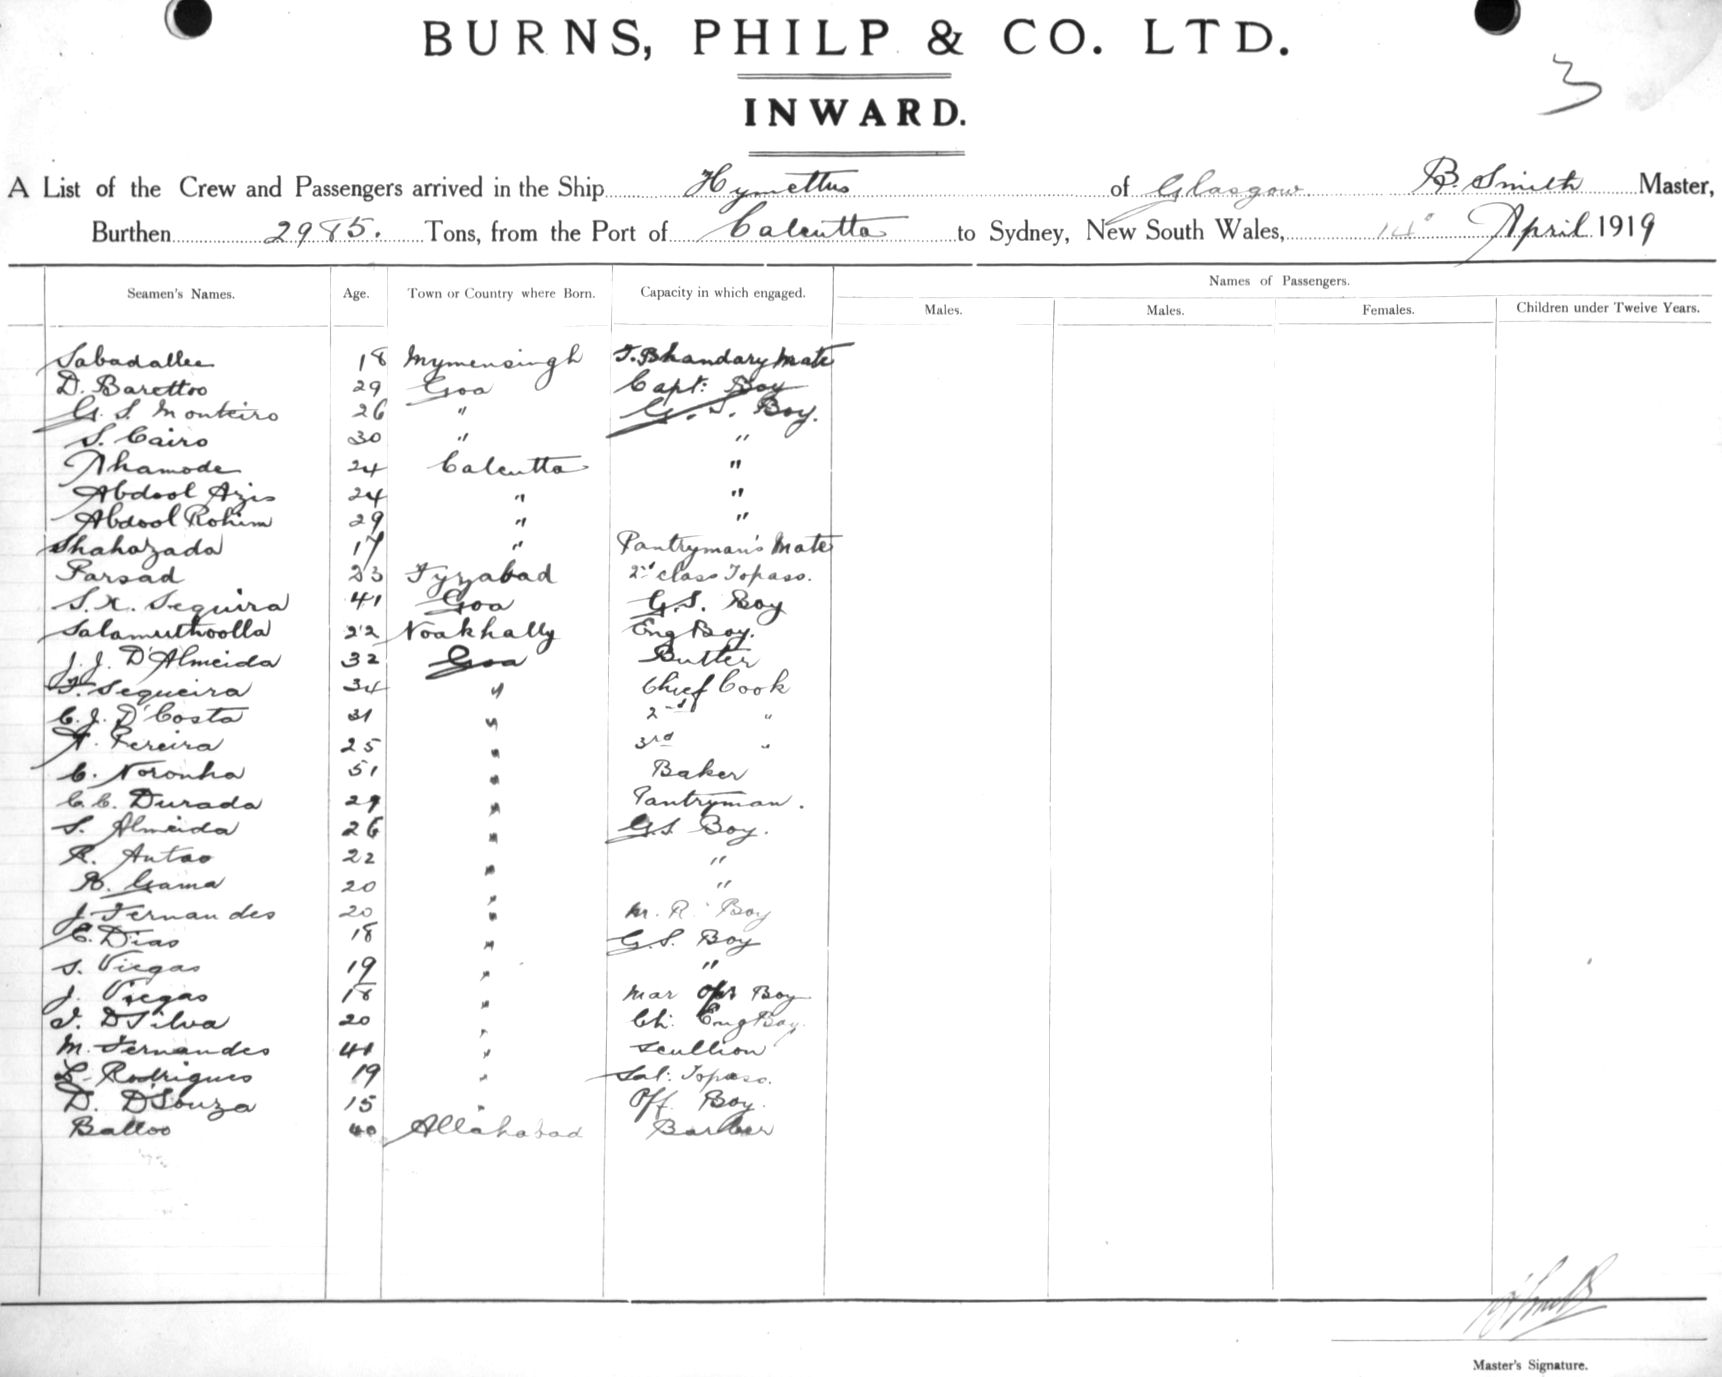 BURNS, PHILP & CO. LTD.
3
INWARD.
A List of the Crew and Passengers arrived in the Ship Hymettus of Glasgow B. Smith Master,
Burthen 2985. Tons, from the Port of Calcutta to Sydney, New South Wales, 14° April 1919
Seamen's Names. Age. Town or Country where Born. Capacity in which engaged. Names of Passengers.
Males. Males. Females. Children under Twelve Years.
Sabadallee 18 Mymensingh T. Bhandary Mate
D. Barettoo 29 Goa Capt: Boy
G. S. Monteiro 26 " G. S. Boy.
S. Cairo 30 " "
Ahamode 24 Calcutta "
Abdool Azis 24 " "
Abdool Rohim 29 " "
Shahazada 17 " Pantryman's Mate
Parsad 23 Fyzabad 2nd class Topass.
S. X. Sequira 41 Goa G.S. Boy
Salamuthoolla 22 Noakhally Eng Boy.
J. J. D'Almeida 32 Goa Butler
F. Sequeira 34 " Chief Cook
C. J. D'Costa 31 " 2nd "
A. Pereira 25 " 3rd "
C. Noronha 51 " Baker
C. C. Durada 29 " Pantryman.
S. Almeida 26 " G.S Boy.
R. Antao 22 " "
R. Gama 20 " "
J. Fernandes 20 " M. R. Boy
C. Dias 18 " G.S. Boy
S. Viegas 19 " "
J. Viegas 18 " Mar Opr Boy
J. DSilva 20 " Ch: Eng Boy.
M. Fernandes 41 " Scullion
L. Rodrigues 19 " Sal: Topass.
D. D'Souza 15 " Off. Boy.
Balloo 40 Allahabad Barber
B Smith
Master's Signature.